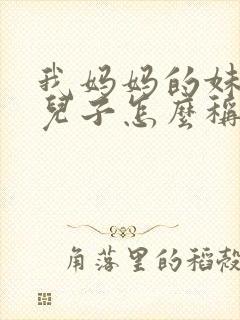 我妈妈的妹
兒子怎麼稱
角落里的稻殼